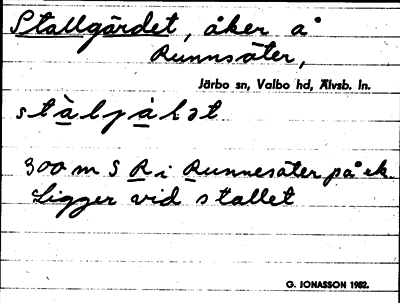 Stallgärdet, åker å
Runnsäter,
Järbo sn, Valbo hd, Älvsb. ln.
300 m S R i Runnesäter på ek.
Ligger vid stallet
G. JONASSON 1982.